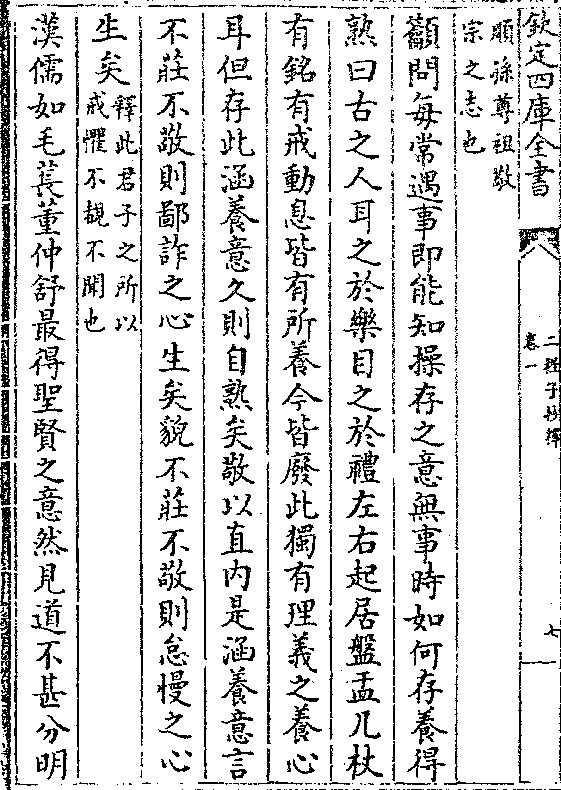 欽定四庫全書
二程子抄釋
卷一
七
順孫尊祖敬
宗之志也
籲問每常遇事即能知操存之意無事時如何存養得
熟曰古之人耳之於樂目之於禮左右起居盤盂几杖
有銘有戒動息皆有所養今皆廢此獨有理義之養心
耳但存此涵養意久則自熟矣敬以直内是涵養意言
不莊不敬則鄙詐之心生矣貌不莊不敬則怠慢之心
生矣釋此君子之所以
戒懼不覩不聞也
漢儒如毛萇董仲舒最得聖賢之意然見道不甚分明